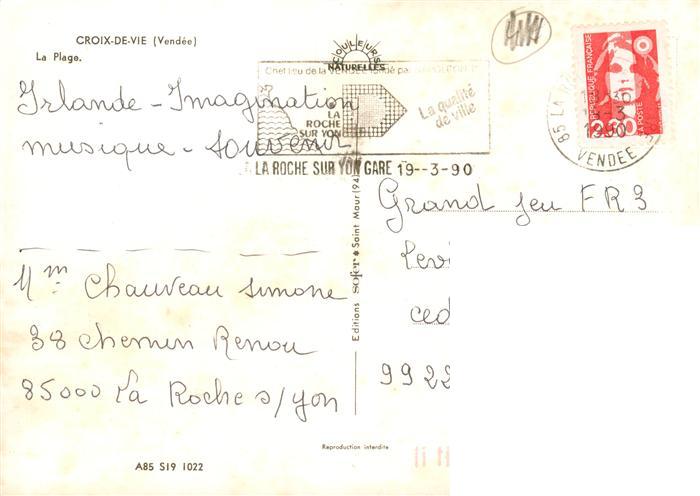 CROIX-DE-VIE (Vendée)
La Plage.
COULEURS
NATURELLES
Chef lieu de la VENDÉE fondé par NAPOLEON 1er
LA
ROCHE
SUR YON
La qualité
de ville
LA ROCHE SUR YON GARE 19--3-90
RÉPUBLIQUE FRANÇAISE
LA POSTE
85 LA R
1990
VENDEE
Irlande - Imagination
musique - souvenir
Grand jeu FR3
Levi
ced
9922
Mme Chauveau Simone
38 chemin Renou
85000 La Roche s/yon
Editions sofer ★ Saint Maur (94)
Reproduction interdite
A85 S19 1022